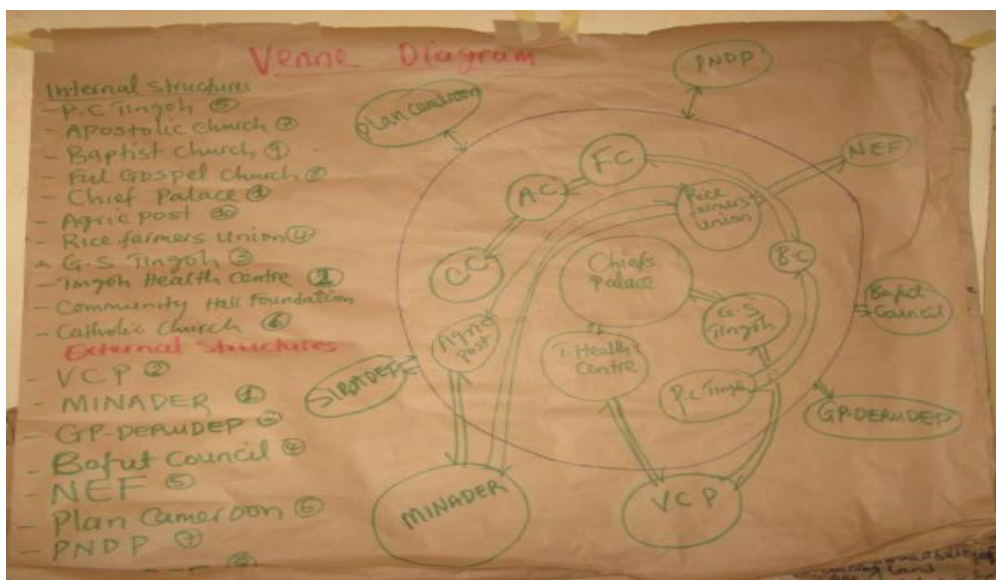 Venne Diagram
Internal structures
- P.C Tingoh ⑤
- Apostolic church ⑦
- Baptist church ⑨
- Full Gospel church ⑧
- Chief Palace ①
- Agric post ⑩
- Rice farmers Union ④
- G.S Tingoh ③
- Tingoh Health Centre ②
- Community Hall Foundation
- Catholic church ⑥
External structures
- VCP ②
- MINADER ①
- GP-DERUDEP ③
- Bafut Council ④
- NEF ⑤
- Plan Cameroon ⑥
- PNDP ⑦
PNDP
Plan Cameroon
NEF
F.C
A.C
Rice
farmers
Union
C.C
B.C
Chiefs
Palace
Bafut
Council
G.S
Tingoh
Agric
post
T. Health
Centre
P.C Tingo
GP-DERUDEP
MINADER
VCP